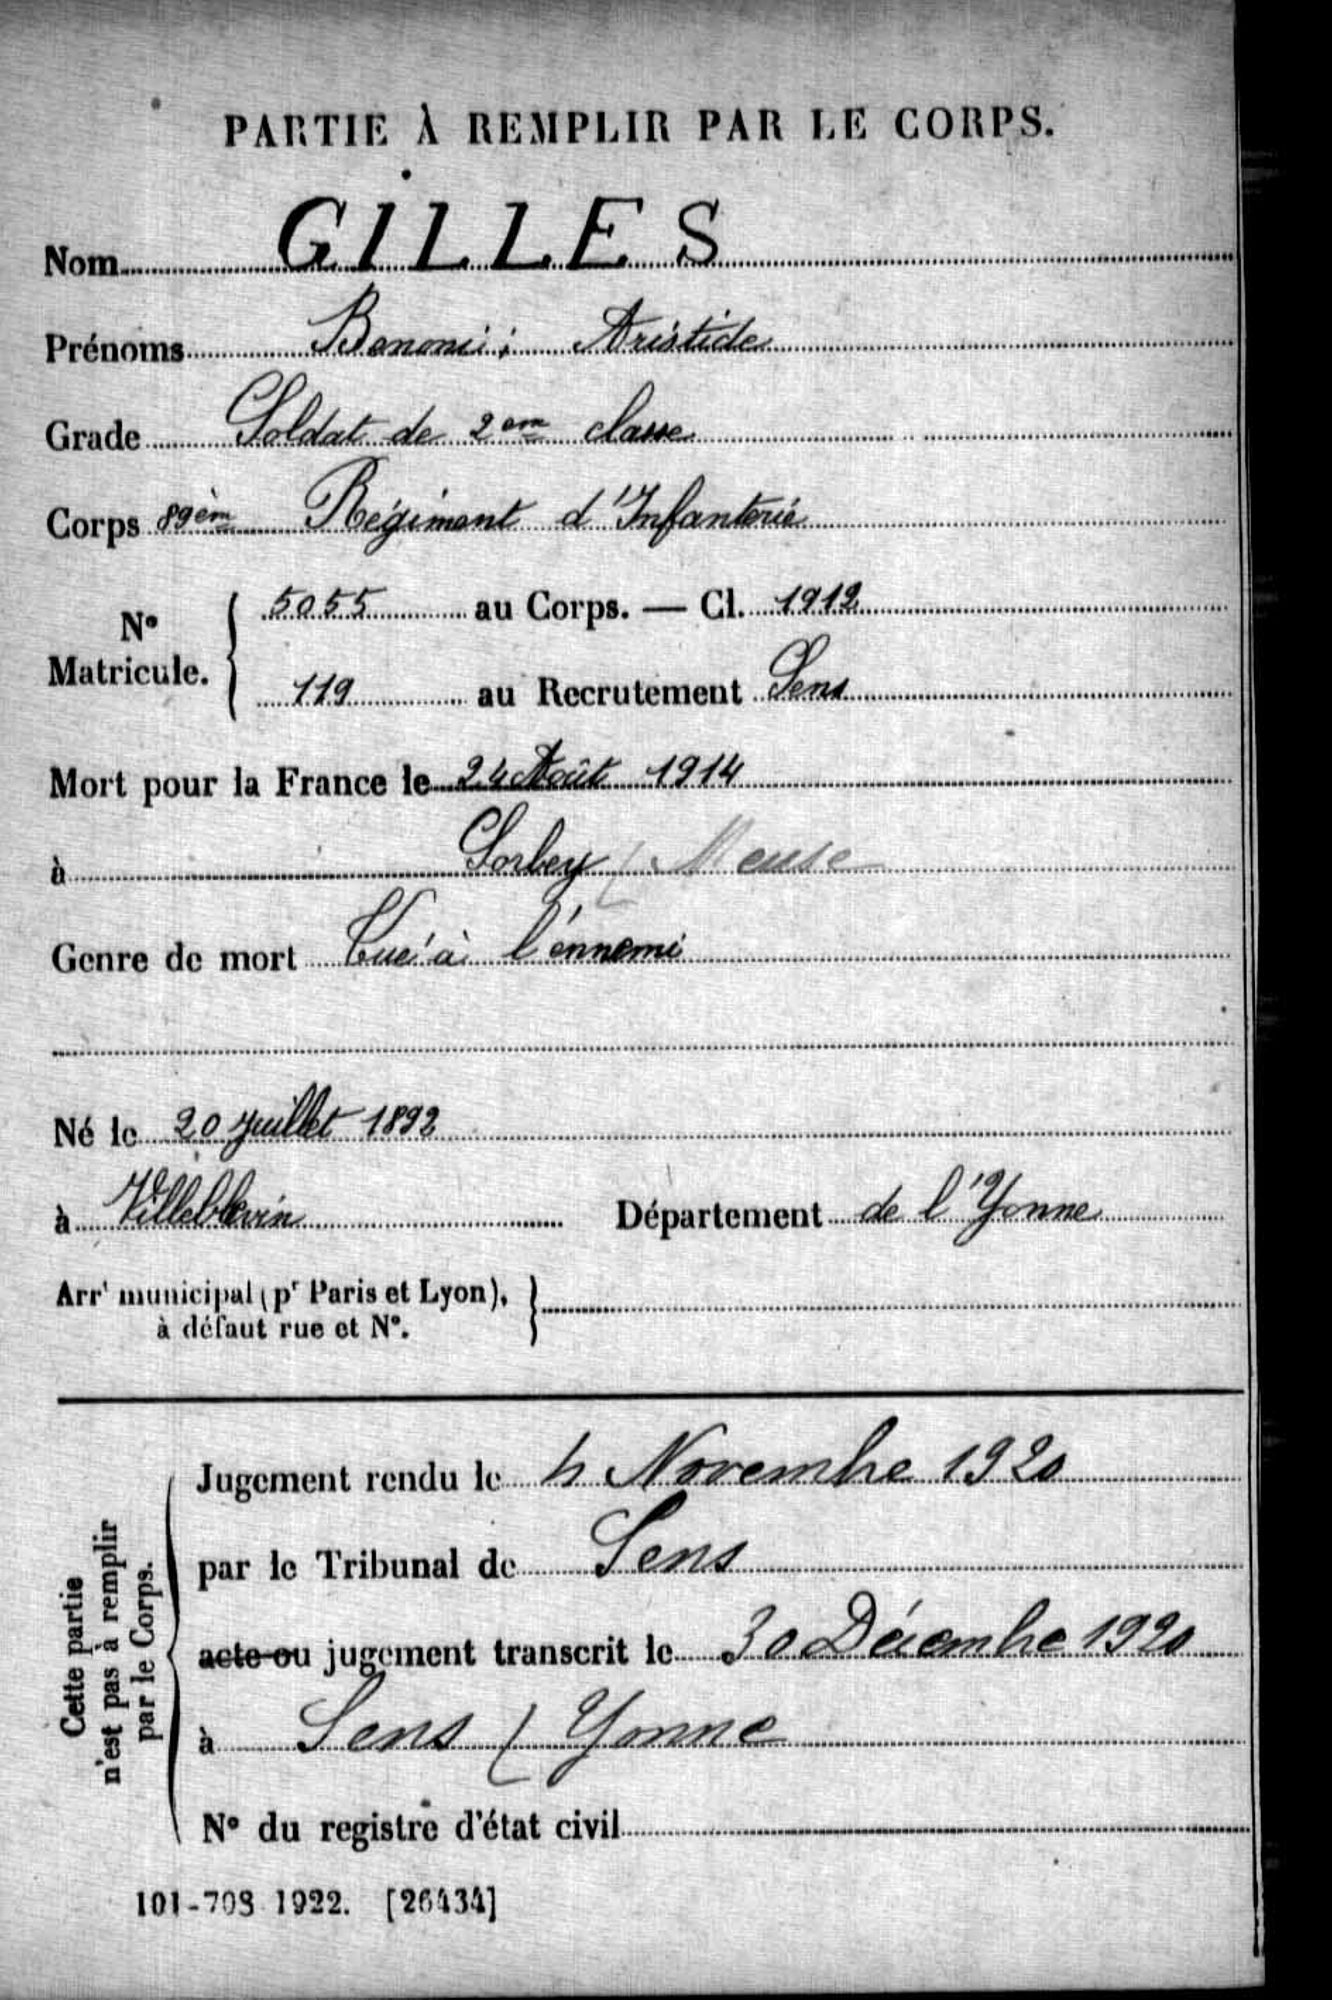 PARTIE À REMPLIR PAR LE CORPS.
Nom GILLES
Prénoms Benoni; Aristide
Grade Soldat de 2em classe
Corps 89èm Régiment d'Infanterie
N° Matricule. 5055 au Corps. — Cl. 1912
119 au Recrutement Sens
Mort pour la France le 24 Août 1914
à Sorbey ( Meuse
Genre de mort Tué à l'énnemi
Né le 20 Juillet 1892
à Villeblevin Département de l'Yonne
Arrt municipal (pr Paris et Lyon),
à défaut rue et N°.
Cette partie
n'est pas à remplir
par le Corps.
Jugement rendu le 4 Novembre 1920
par le Tribunal de Sens
acte ou jugement transcrit le 30 Décembre 1920
à Sens ( Yonne
N° du registre d'état civil
101-708 1922. [26434]